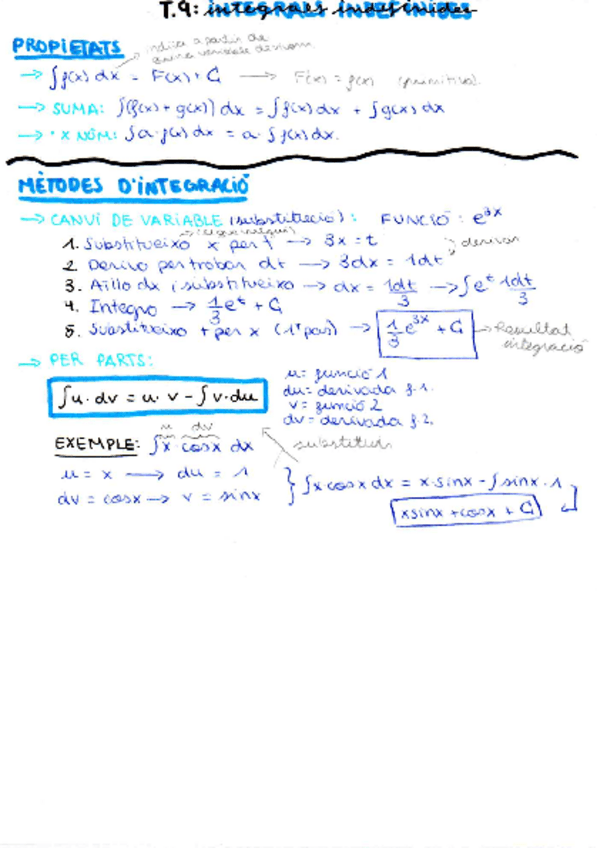 T.9: integrals indefinides
PROPIETATS
indica a partir de
quina variable derivem
→ ∫f(x) dx = F(x) + C → F'(x) = f(x) (primitiva).
→ SUMA: ∫(f(x) + g(x)) dx = ∫f(x) dx + ∫g(x) dx
→ · x NÚM: ∫a·f(x) dx = a·∫f(x) dx.
MÈTODES D'INTEGRACIÓ
→ CANVI DE VARIABLE (substitució): FUNCIÓ: e^3x
1. Substitueixo x per t → 3x = t
derivar
2. Derivo per trobar dt → 3dx = 1dt
3. Aïllo dx i substitueixo → dx = 1dt/3 → ∫e^t 1dt/3
4. Integro → 1/3 e^t + C
5. Substitueixo t per x (1r pas) → 1/3 e^3x + C → Resultat
integració
→ PER PARTS:
∫u·dv = u·v - ∫v·du
u = funció 1
du = derivada f.1.
v = funció 2
dv = derivada f.2.
u dv
EXEMPLE: ∫x·cosx dx
substituir
u = x → du = 1
dv = cosx → v = sinx
∫x cosx dx = x·sinx - ∫sinx·1
xsinx + cosx + C